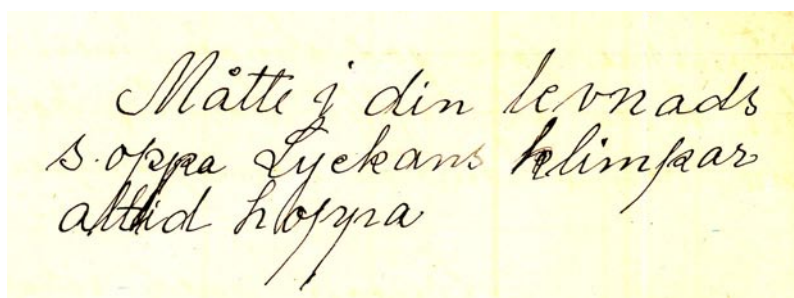 Måtte j din levnads
s.oppa Lyckans klimpar
alltid hoppa